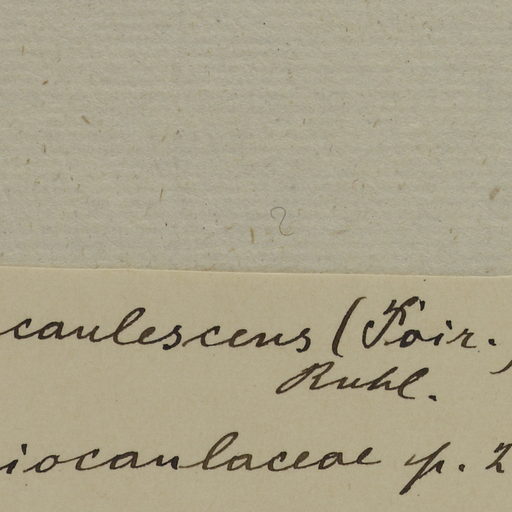 caulescens (Poir.)
Ruhl.
iocaulaceae p. 2